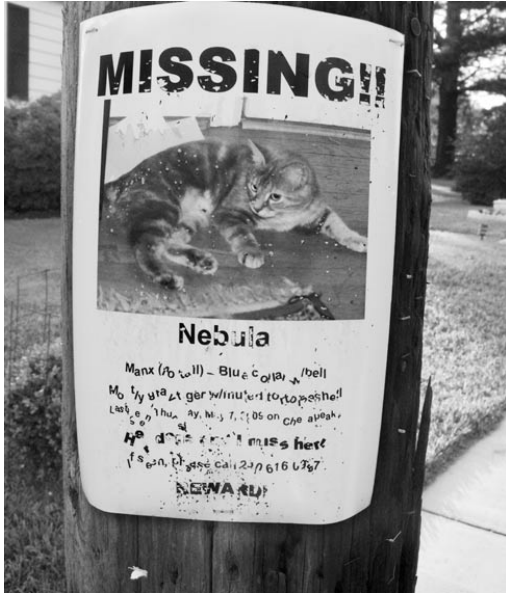 MISSING!!
Nebula
Manx (No tail) – Blue collar w/bell
Mo tly gray t ger w/muted tortoiseshell
Last seen Thu ay, May 7, on Che apeak
He d miss her!
If seen, please call
REWARD!